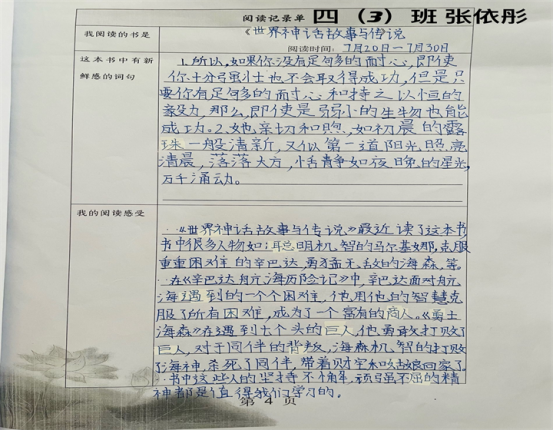 阅读记录单 四(3)班 张依彤
我阅读的书是 《世界神话故事与传说
阅读时间: 7月20日—7月30日
这本书中有新鲜感的词句
1.所以,如果你没有足何多的耐心,即使
你十分强壮也不会取得成功,但是只
要你有足何多的耐心和持之以恒的
毅力,那么,即使是弱小的生物也能
成功。2.她亲切和煦,如初晨的露
珠一般清新,又似第一道阳光照亮
清晨,落落大方,恬静如夜晚的星光,
万千涌动。
我的阅读感受
《世界神话故事与传说》最近读了这本书
书中很多人物如:聪明机智的马尔基娜,克服
重重困难的辛巴达,勇猛无敌的海森,等。
在《辛巴达航海历险记》中,辛巴达面对航
海遇到的一个个困难,他用他的智慧克
服了所有困难,成为了一个富有的商人。《勇士
海森》在遇到七个头的巨人,他勇敢打败了
巨人,对于同伴的背叛,海森机智的打败
了海神,杀死了同伴,带着财宝和姑娘回家了。
书中这些人的坚持不懈,顽强不屈的精
神都是值得我们学习的。
第 4 页